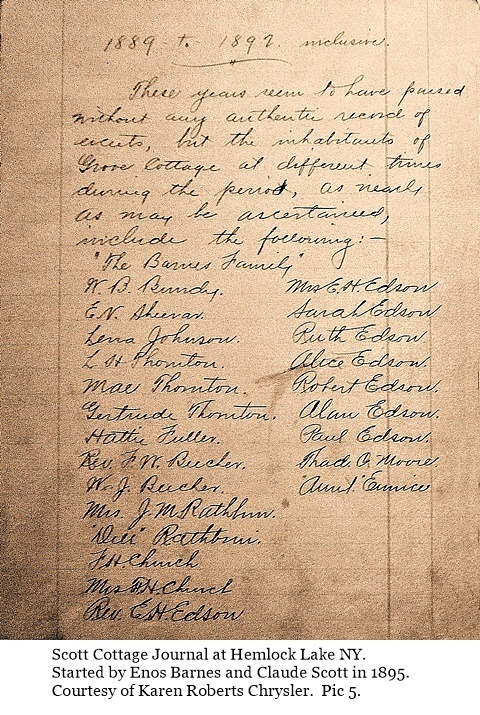 1889 to 1892. inclusive.
These years seem to have passed
without any authentic record of
events, but the inhabitants of
Grove Cottage at different times
during the period, as nearly
as may be ascertained,
include the following:-
"The Barnes Family"
W. B. Bundy.
E. N. Sheevar.
Lena Johnson.
L H Thornton.
Mae Thornton.
Gertrude Thornton.
Hattie Fuller.
Rev. F. W. Beecher.
W. J. Beecher.
Mrs. J. M. Rathbun.
Rathbun.
F H Church
Mrs F. H. Church
Rev. E. H. Edson
Mrs E. H. Edson
Sarah Edson
Ruth Edson
Alice Edson.
Robert Edson.
Alan Edson.
Paul Edson.
Thad. O. Moore.
"Aunt" Eunice
Scott Cottage Journal at Hemlock Lake NY.
Started by Enos Barnes and Claude Scott in 1895.
Courtesy of Karen Roberts Chrysler.  Pic 5.